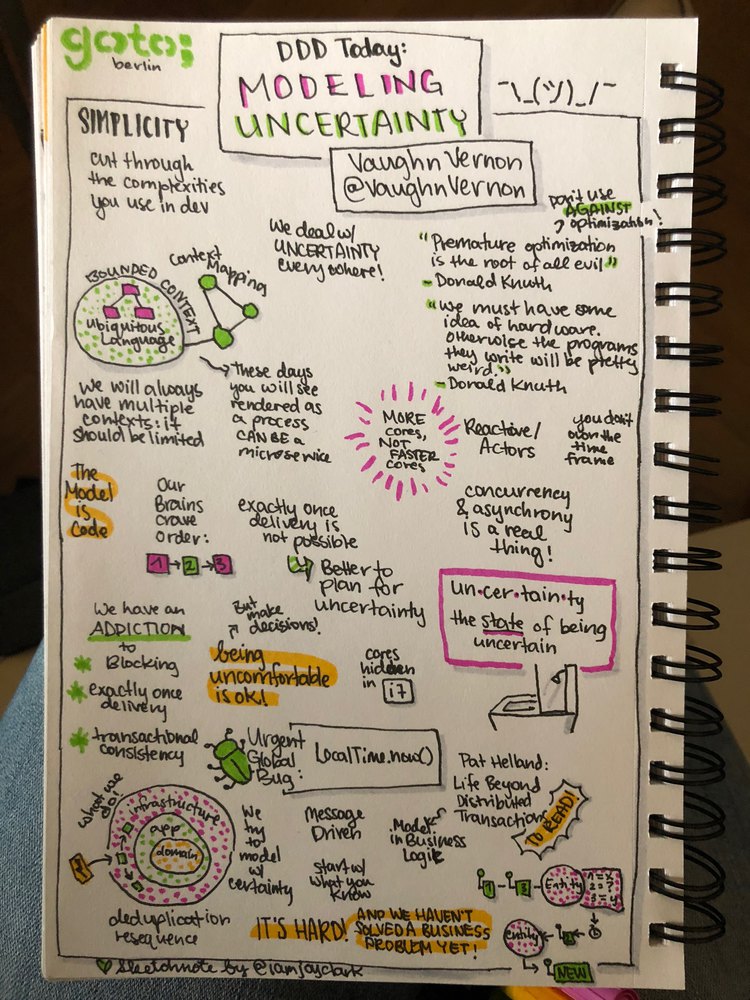 goto;
berlin
DDD Today:
MODELING
UNCERTAINTY
¯\_(ツ)_/¯
Vaughn Vernon
@VaughnVernon
SIMPLICITY
cut through
the complexities
you use in dev
We deal w/
UNCERTAINTY
everywhere!
don't use
AGAINST
optimization!
"Premature optimization
is the root of all evil"
- Donald Knuth
"We must have some
idea of hardware.
Otherwise the programs
they write will be pretty
weird."
- Donald Knuth
BOUNDED CONTEXT
Ubiquitous
Language
Context
Mapping
These days
you will see
rendered as
a process
CAN BE a
microservice
We will always
have multiple
contexts: it
should be limited
MORE
cores,
NOT
FASTER
cores
Reactive/
Actors
you don't
own the
time
frame
The
Model
is
Code
Our
Brains
crave
Order:
1 → 2 → 3
exactly once
delivery is
not possible
Better to
plan for
uncertainty
concurrency
& asynchrony
IS a real
thing!
un•cer•tain•ty
the state of being
uncertain
We have an
ADDICTION
to
* Blocking
* exactly once
delivery
* transactional
consistency
But
make
decisions!
being
uncomfortable
is ok!
cores
hidden
in i7
Urgent
Global
Bug:
LocalTime.now()
Pat Helland:
Life Beyond
Distributed
Transactions
TO READ!
what we
do!
infrastructure
app
domain
deduplication
resequence
We
try
to
model
w/
certainty
Message
Driven
start w/
what you
know
Model
in Business
Logik
1
3
Entity
1 = x
2 = ?
3 = y
entity
2
NEW
IT'S HARD!
AND WE HAVEN'T
SOLVED A BUSINESS
PROBLEM YET!
Sketchnote by @iamjayclark